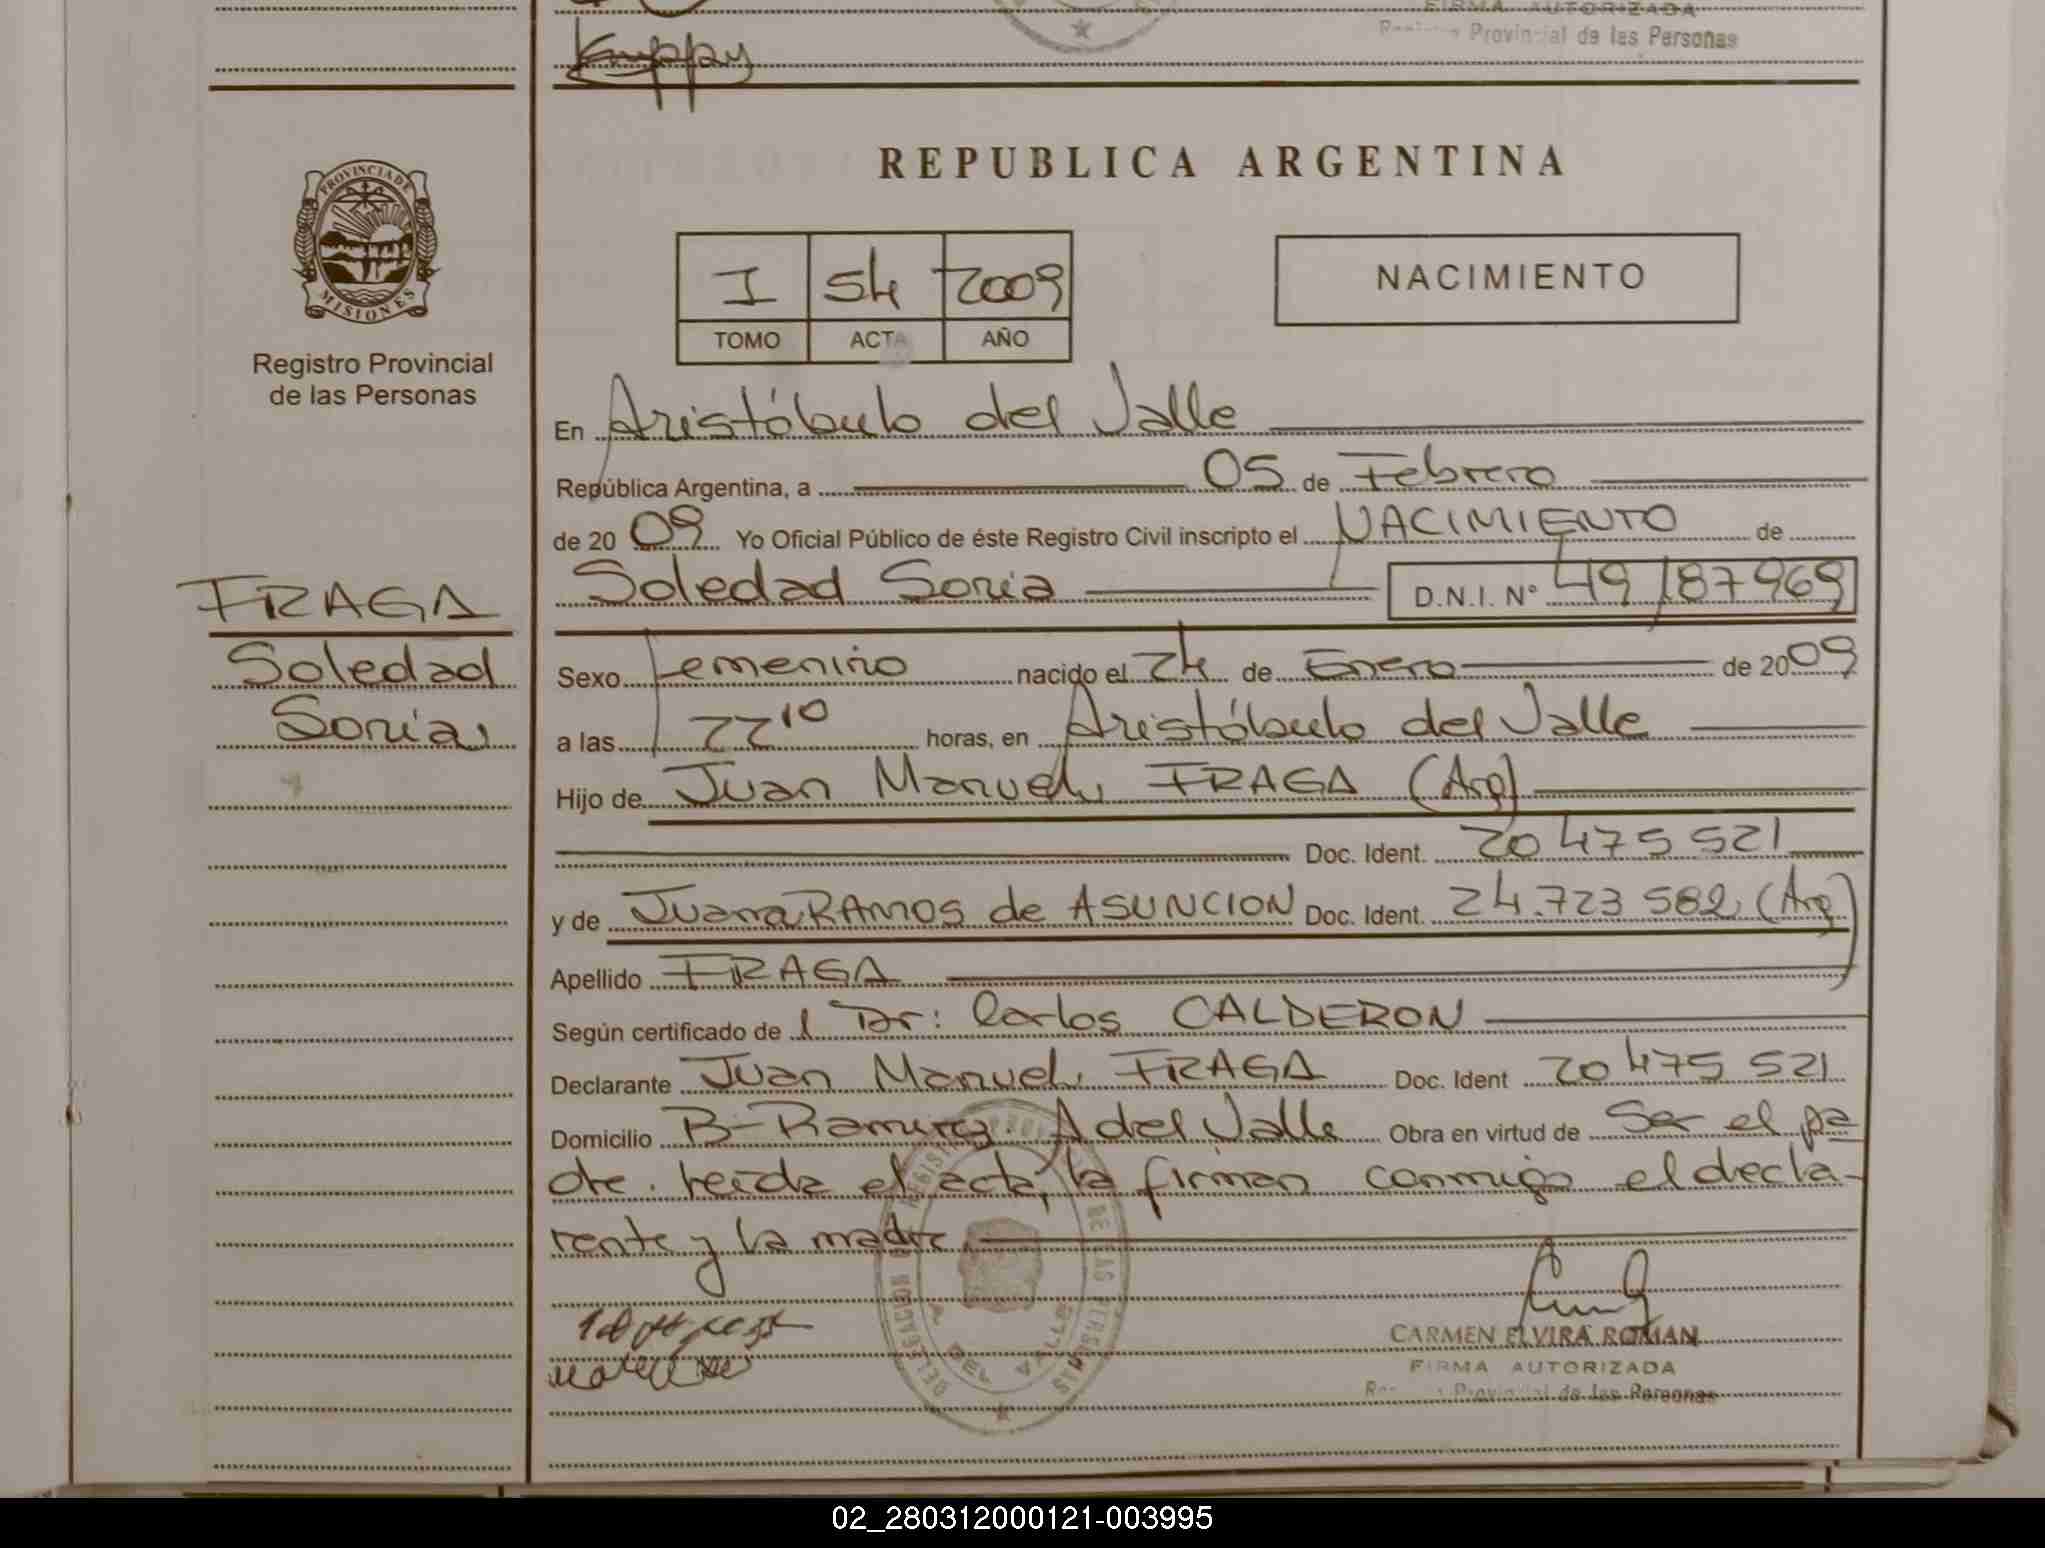 FIRMA AUTORIZADA
Provincial de las Personas
PROVINCIA DE
MISIONES
Registro Provincial
de las Personas
REPUBLICA ARGENTINA
I 54 2009
TOMO ACTA AÑO
NACIMIENTO
En Aristóbulo del Valle
República Argentina, a 05 de Febrero
de 20 09 Yo Oficial Público de éste Registro Civil inscripto el NACIMIENTO de
Soledad Soria D.N.I. Nº 49187969
FRAGA
Soledad
Soria
Sexo Femenino nacido el 24 de Enero de 2009
a las 22 10 horas, en Aristóbulo del Valle
Hijo de Juan Manuel FRAGA (Arg)
Doc. Ident. 20 475 521
y de Juana RAMOS de ASUNCION Doc. Ident. 24.723 582 (Arg)
Apellido FRAGA
Según certificado de l Dr: Carlos CALDERON
Declarante Juan Manuel FRAGA Doc. Ident 20 475 521
Domicilio Bº Ramirez. A del Valle Obra en virtud de Ser el pa
dre. Leida el acta, la firman conmigo el decla-
rante y la madre.
CARMEN ELVIRA ROMAN
FIRMA AUTORIZADA
Provincial de las Personas
DELEGACION A. DEL VALLE
REGISTRO PROVINCIAL DE LAS PERSONAS
02_280312000121-003995